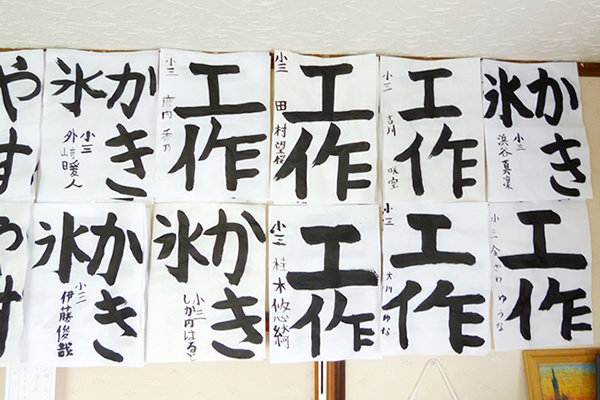 かき
氷
小三
浜谷真凛
工作
小三
吉川
工作
小三
田村望桜
工作
小三
かき
氷
小三
外﨑暖人
やす
工作
小三
金ざわゆうな
工作
小三
大川ゆな
工作
小三
桂木悠心綺
かき
氷
小三
しか内はると
かき
氷
小三
伊藤俊哉
やす